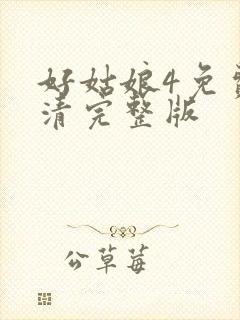 好姑娘4免费
清完整版
公草莓